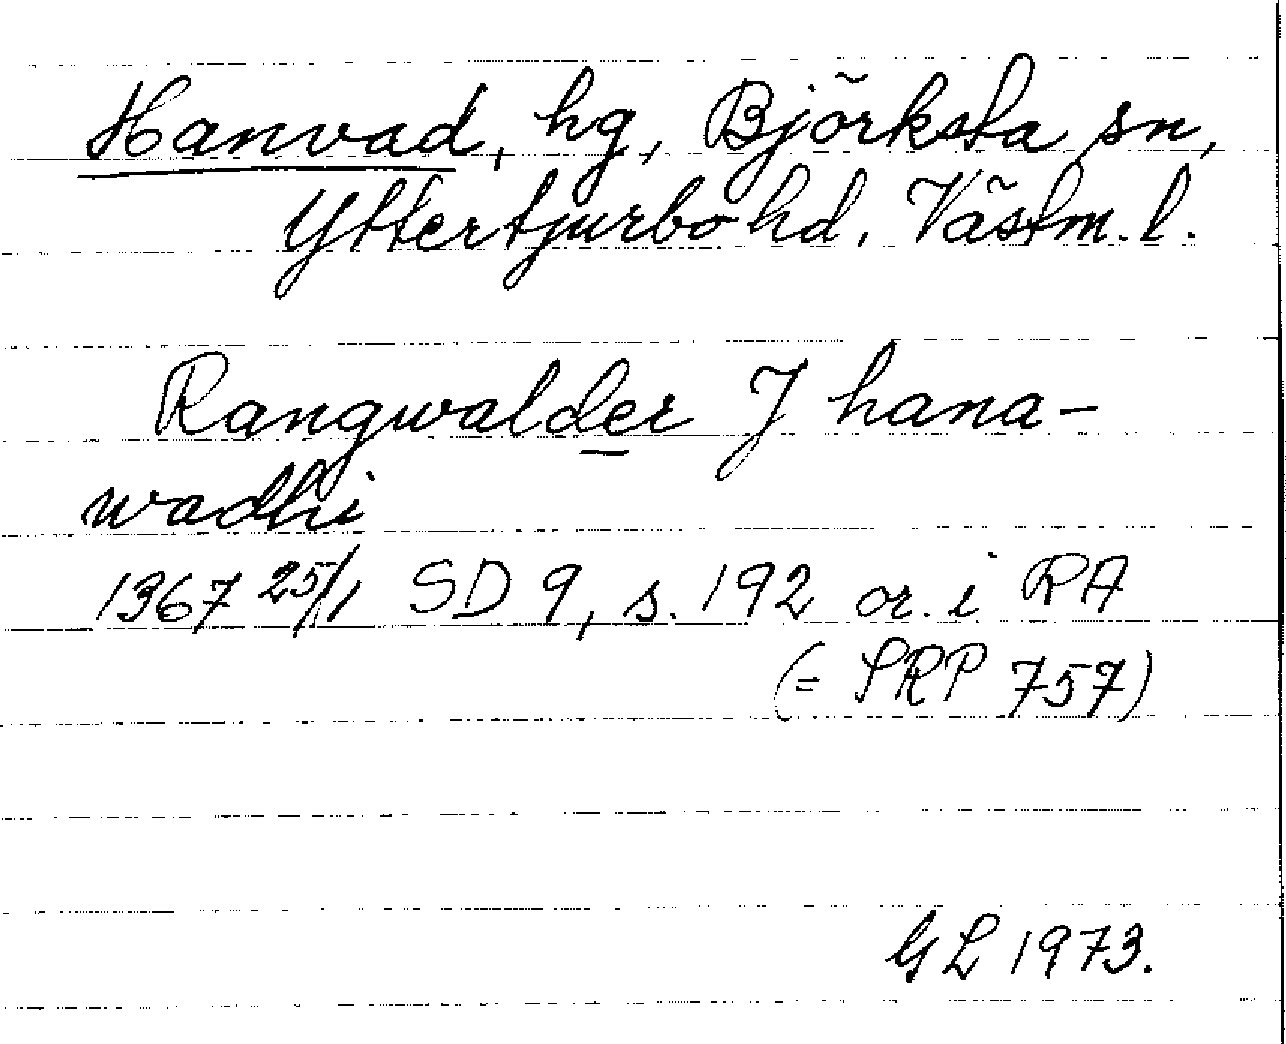 Hanvad, hg, Björksta sn,
Yttertjurbo hd, Västm. l.
Rangwalder J hana-
wadhi
1367 25/1 SD 9, s. 192 or. i RA
(= SRP 757)
GL 1973.